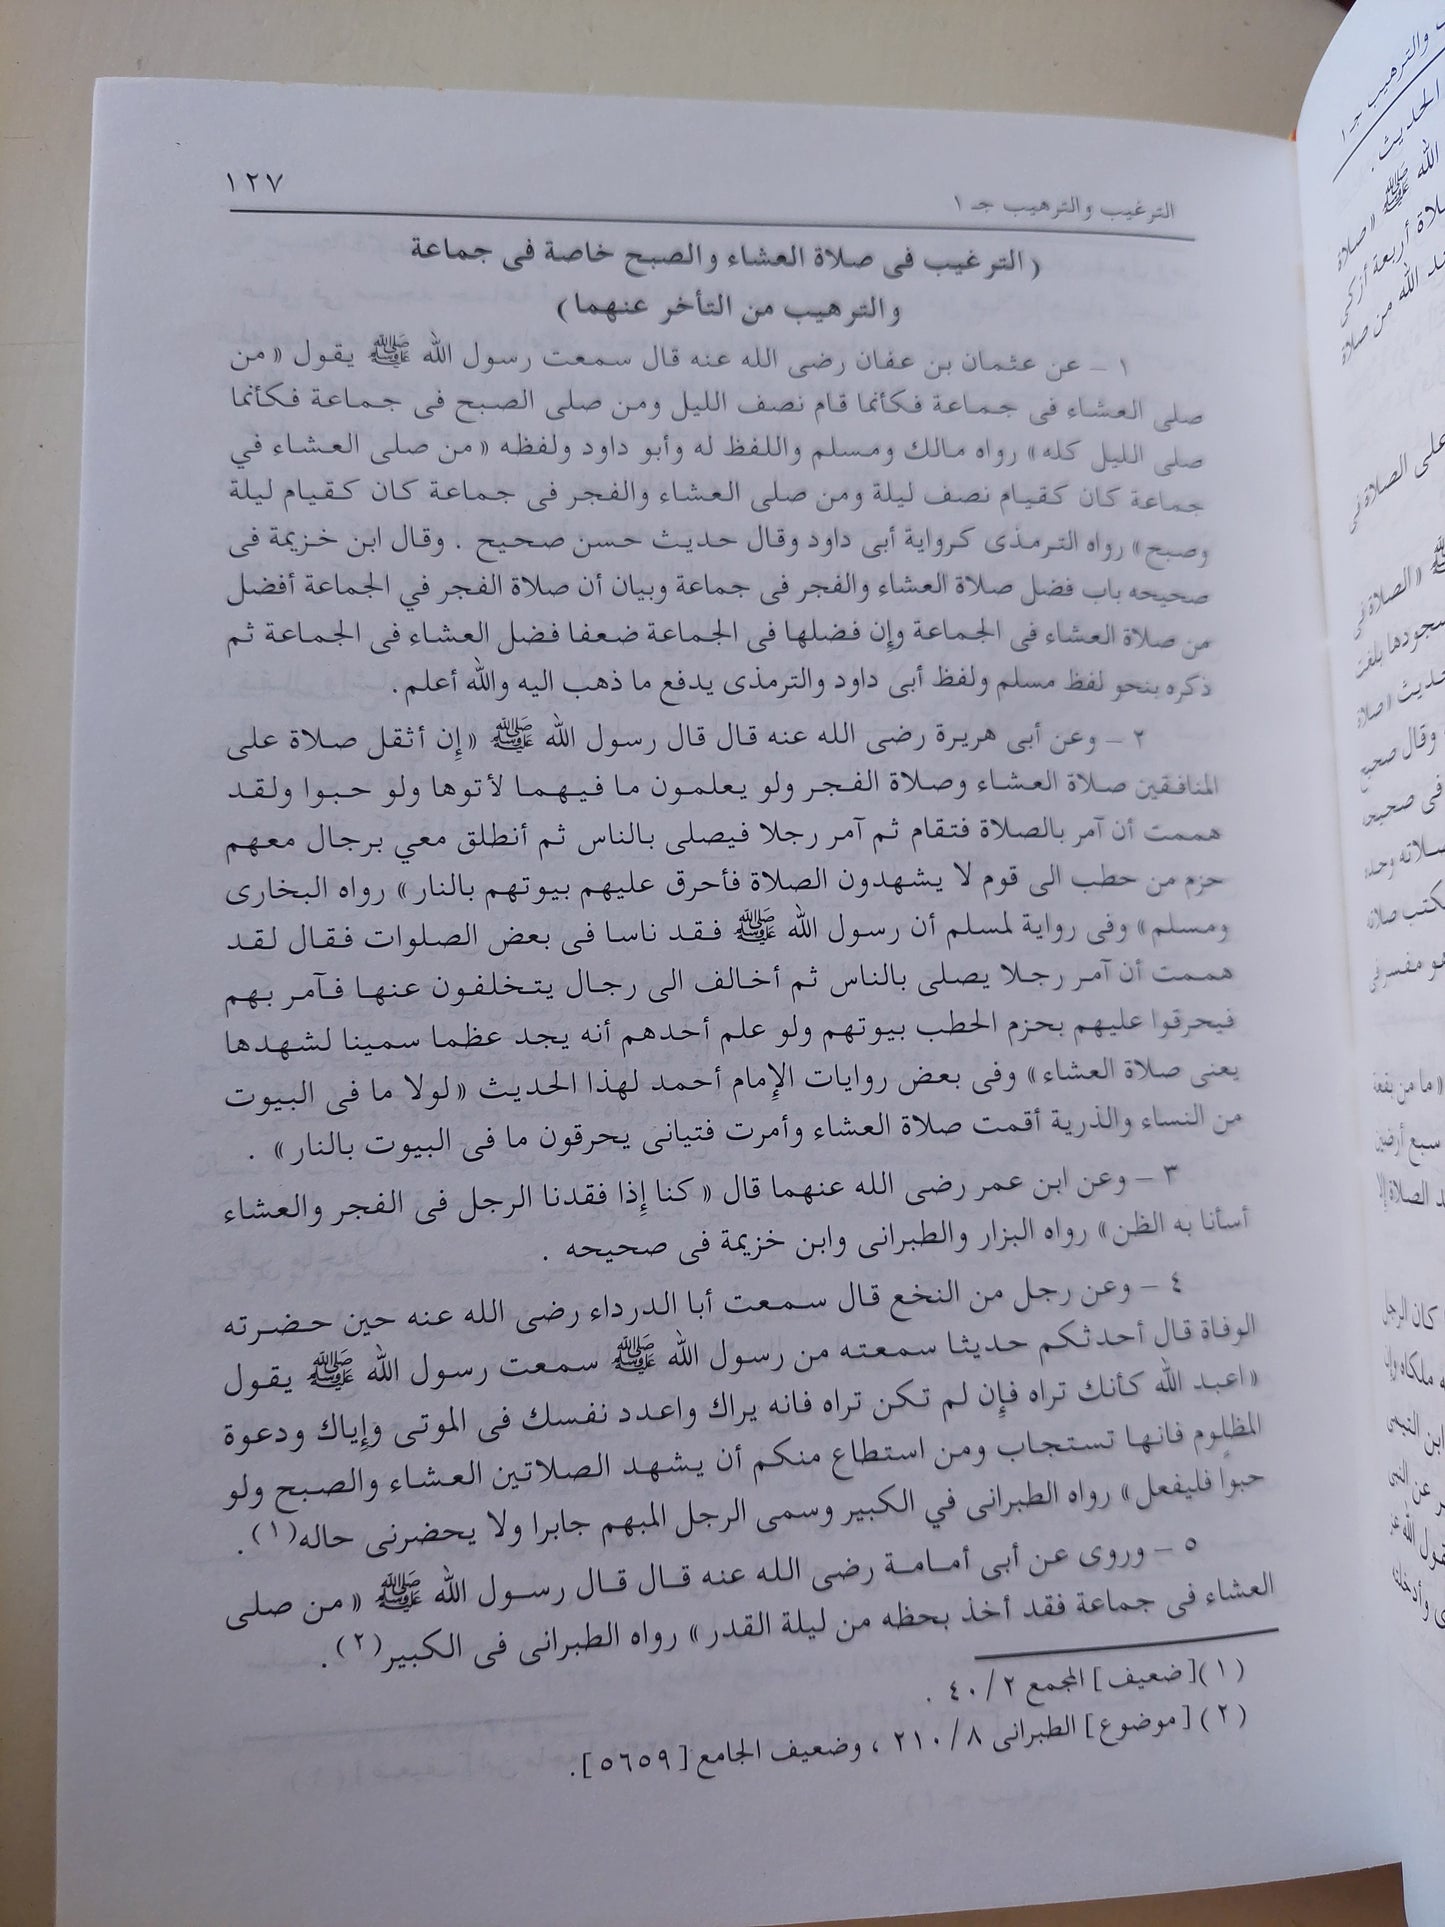 الترغيب والترهيب جـ ١
١٢٧
( الترغيب فى صلاة العشاء والصبح خاصة فى جماعة
والترهيب من التأخر عنهما )
١ – عن عثمان بن عفان رضى الله عنه قال سمعت رسول الله ﷺ يقول « من
صلى العشاء فى جماعة فكأنما قام نصف الليل ومن صلى الصبح فى جماعة فكأنما
صلى الليل كله » رواه مالك ومسلم واللفظ له وأبو داود ولفظه « من صلى العشاء في
جماعة كان كقيام نصف ليلة ومن صلى العشاء والفجر فى جماعة كان كقيام ليلة
وصبح » رواه الترمذى كرواية أبى داود وقال حديث حسن صحيح . وقال ابن خزيمة فى
صحيحه باب فضل صلاة العشاء والفجر فى جماعة وبيان أن صلاة الفجر في الجماعة أفضل
من صلاة العشاء فى الجماعة وإن فضلها فى الجماعة ضعفا فضل العشاء فى الجماعة ثم
ذكره بنحو لفظ مسلم ولفظ أبى داود والترمذى يدفع ما ذهب اليه والله أعلم .
٢ – وعن أبى هريرة رضى الله عنه قال قال رسول الله ﷺ « إن أثقل صلاة على
المنافقين صلاة العشاء وصلاة الفجر ولو يعلمون ما فيهما لأتوها ولو حبوا ولقد
هممت أن آمر بالصلاة فتقام ثم آمر رجلا فيصلى بالناس ثم أنطلق معي برجال معهم
حزم من حطب الى قوم لا يشهدون الصلاة فأحرق عليهم بيوتهم بالنار » رواه البخارى
ومسلم » وفى رواية لمسلم أن رسول الله ﷺ فقد ناسا فى بعض الصلوات فقال لقد
هممت أن آمر رجلا يصلى بالناس ثم أخالف الى رجال يتخلفون عنها فآمر بهم
فيحرقوا عليهم بحزم الحطب بيوتهم ولو علم أحدهم أنه يجد عظما سمينا لشهدها
يعنى صلاة العشاء » وفى بعض روايات الإمام أحمد لهذا الحديث « لولا ما فى البيوت
من النساء والذرية أقمت صلاة العشاء وأمرت فتيانى يحرقون ما فى البيوت بالنار » .
٣ – وعن ابن عمر رضى الله عنهما قال « كنا إذا فقدنا الرجل فى الفجر والعشاء
أسأنا به الظن » رواه البزار والطبرانى وابن خزيمة فى صحيحه .
٤ – وعن رجل من النخع قال سمعت أبا الدرداء رضى الله عنه حين حضرته
الوفاة قال أحدثكم حديثا سمعته من رسول الله ﷺ سمعت رسول الله ﷺ يقول
« اعبد الله كأنك تراه فإن لم تكن تراه فانه يراك واعدد نفسك فى الموتى وإياك ودعوة
المظلوم فانها تستجاب ومن استطاع منكم أن يشهد الصلاتين العشاء والصبح ولو
حبوا فليفعل » رواه الطبرانى في الكبير وسمى الرجل المبهم جابرا ولا يحضرنى حاله(١) .
٥ – وروى عن أبى أمامة رضى الله عنه قال قال رسول الله ﷺ « من صلى
العشاء فى جماعة فقد أخذ بحظه من ليلة القدر » رواه الطبرانى فى الكبير(٢) .
(١)[ ضعيف ] المجمع ٢/ ٤٠ .
(٢) [ موضوع ] الطبرانى ٨/ ٢١٠ ، وضعيف الجامع [ ٥٦٥٩ ] .
والترهيب جـ ١
الحديث .
الله ﷺ « صلاة
صلاة أربعة أزكى
الله من صلاة
على الصلاة فى
« الصلاة فى
سجودها بلغت
وقال صحيح
فى صحيحه
صلاته وحده
« ما من بقعة
سبع أرضين
كان الرجل